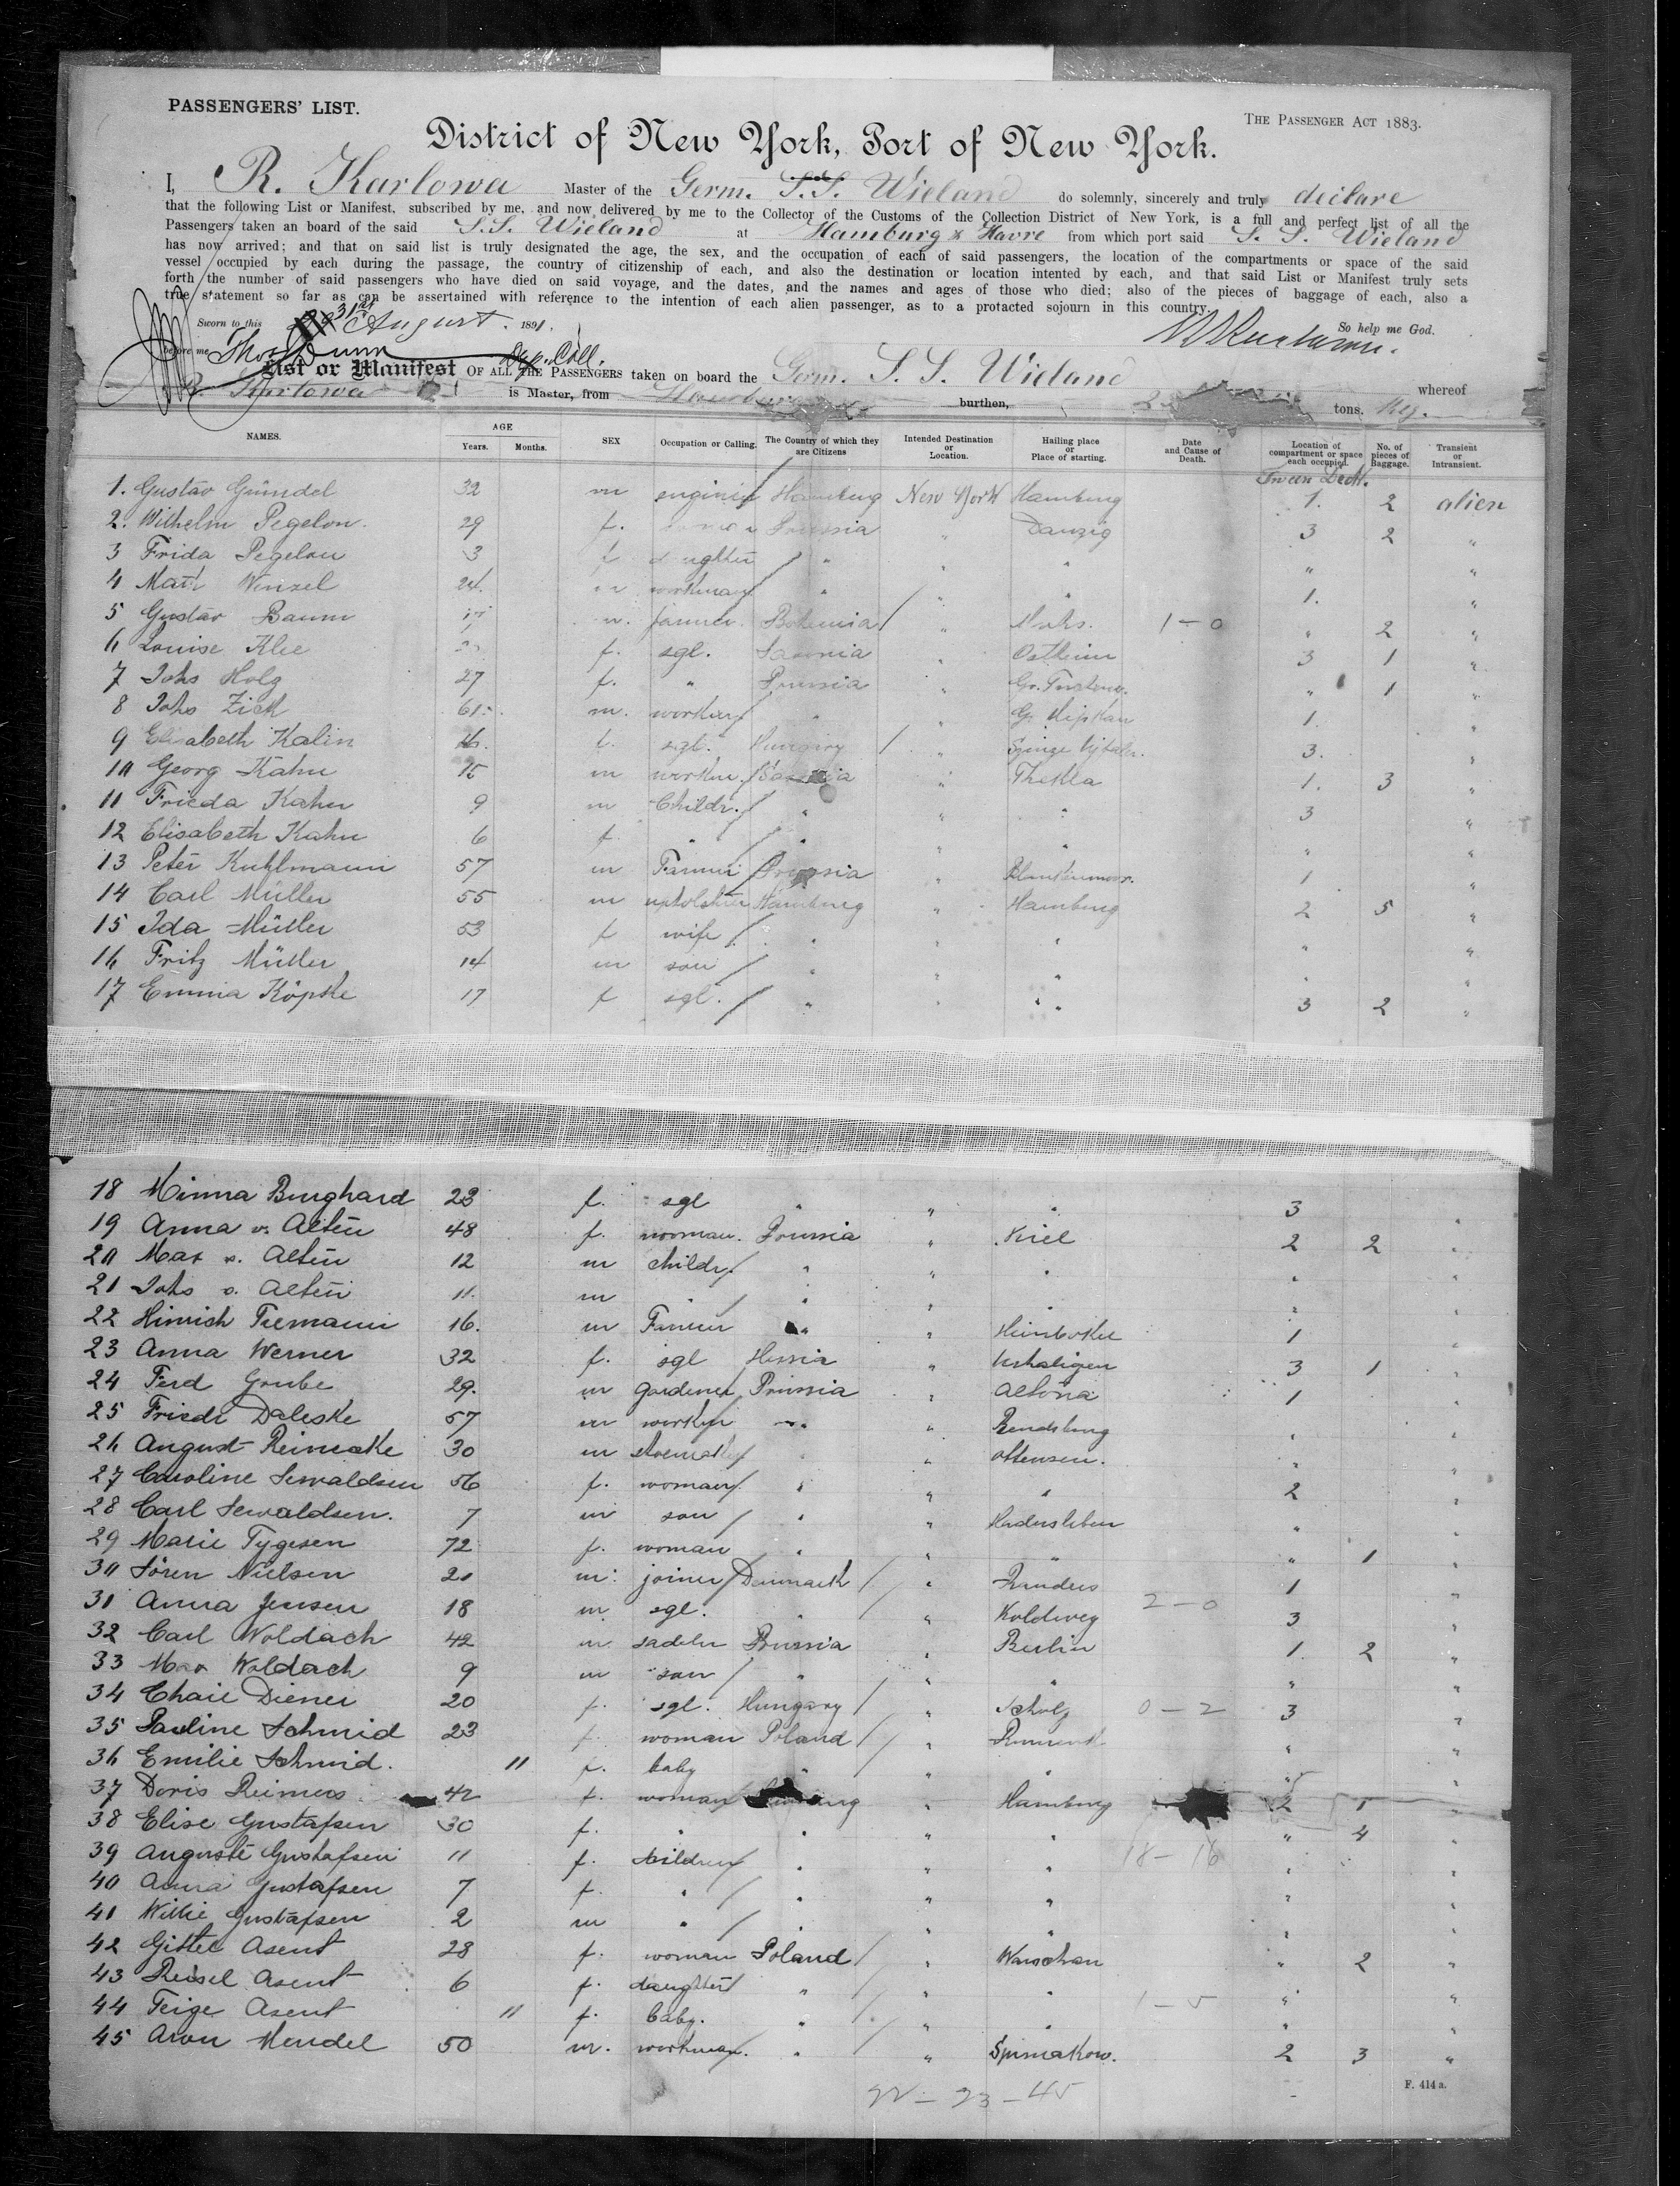 PASSENGERS' LIST.
THE PASSENGER ACT 1883.
District of New York, Port of New York.
I, R. Karlowa Master of the Germ. S.S. Wieland do solemnly, sincerely and truly declare
that the following List or Manifest, subscribed by me, and now delivered by me to the Collector of the Customs of the Collection District of New York, is a full and perfect list of all the
Passengers taken an board of the said S.S. Wieland at Hamburg & Havre from which port said S. S. Wieland
has now arrived; and that on said list is truly designated the age, the sex, and the occupation of each of said passengers, the location of the compartments or space of the said
vessel occupied by each during the passage, the country of citizenship of each, and also the destination or location intented by each, and that said List or Manifest truly sets
forth the number of said passengers who have died on said voyage, and the dates, and the names and ages of those who died; also of the pieces of baggage of each, also a
true statement so far as can be assertained with reference to the intention of each alien passenger, as to a protacted sojourn in this country.
Sworn to this 31st August. 1891.
So help me God.
before me Thos Dunn Dep. Coll.
List or Manifest OF ALL THE PASSENGERS taken on board the Germ. S. S. Wieland whereof
R. Karlowa is Master, from Hamburg burthen, tons. Reg.
NAMES. AGE Years. Months. SEX Occupation or Calling. The Country of which they are Citizens Intended Destination or Location. Hailing place or Place of starting. Date and Cause of Death. Location of compartment or space each occupied. No. of pieces of Baggage. Transient or Intransient.
Tween Deck.
1. Gustav Gündel 32 m engineer Hamburg New York Hamburg 1. 2 alien
2. Wilhelm Pegelon. 29 f. Prussia " Danzig 3 2 "
3 Frida Pegelon 3 f daughter " " " " "
4 Math Wenzel 24. m workman " " " 1. "
5 Gustav Baum m. farmer. Bohemia " 1-0 " 2 "
6 Louise Klee f. sgl. Saxonia " Ostheim 3 1 "
7 Johs Holz 27 f. " Prussia " " 1 "
8 Johs Zick 61. m. worker " " 1. "
9 Elisabeth Kalin 16. f. sgl. Hungary " 3. "
10 Georg Kahn 15 m worker. Saxonia " Thekla 1. 3 "
11 Frieda Kahn 9 m Childr. " " " 3 "
12 Elisabeth Kahn 6 f. " " " " " "
13 Peter Kuhlmann 57 m Farmer Prussia " Blankenmoor. 1 "
14 Carl Müller 55 m upholsterer Hamburg " Hamburg 2 5 "
15 Ida Müller 53 f wife " " " " "
16 Fritz Müller 14 m son " " " " "
17 Emma Köpske 17 f sgl. " " " 3 2 "
18 Minna Burghard 23 f. sgl " " " 3 "
19 Anna v. Alten 48 f. woman. Prussia " Kiel 2 2 "
20 Max v. Alten 12 m childr. " " " " "
21 Johs v. Alten 11. m " " " " " "
22 Hinrich Tiemann 16. m Farmer " " 1 "
23 Anna Werner 32 f. sgl Hessia " 3 1 "
24 Ferd Grube 29. m gardener Prussia " Altona 1 "
25 Friedr Daleske 57 m worker " " Rendsburg " "
26 August Reinecke 30 m shoemaker " " Ottensen. " "
27 Caroline Sewaldsen 56 f. woman " " " 2 "
28 Carl Sewaldsen. 7 m son " " Hadersleben " "
29 Marie Tygesen 72 f. woman " " " " 1 "
30 Sören Nielsen 21 m. joiner Denmark " Randers 1 "
31 Anna Jensen 18 m sgl. " " Koldwey 2-0 3 "
32 Carl Woldach 42 m sadeler Prussia " Berlin 1. 2 "
33 Max Woldach 9 m son " " " " "
34 Chaie Diener 20 f. sgl. Hungary " Scholz 0-2 3 "
35 Pauline Schmid 23 f. woman Poland " " "
36 Emilie Schmid. 11 f. baby " " " " "
37 Doris Reimers 42 f. woman Hamburg " Hamburg 2 1 "
38 Elise Gustafsen 30 f. " " " " " 4 "
39 Auguste Gustafsen 11 f. children " " " 18-16 " "
40 Anna Gustafsen 7 f. " " " " " "
41 Willie Gustafsen 2 m " " " " "
42 Gittel Asent 28 f. woman Poland " Warschau " 2 "
43 Reisel Asent 6 f. daughter " " " " "
44 Feige Asent 11 f. baby. " " " 1-5 " "
45 Aron Mendel 50 m. workman. " " Spinakow. 2 3 "
22-23-45
F. 414a.